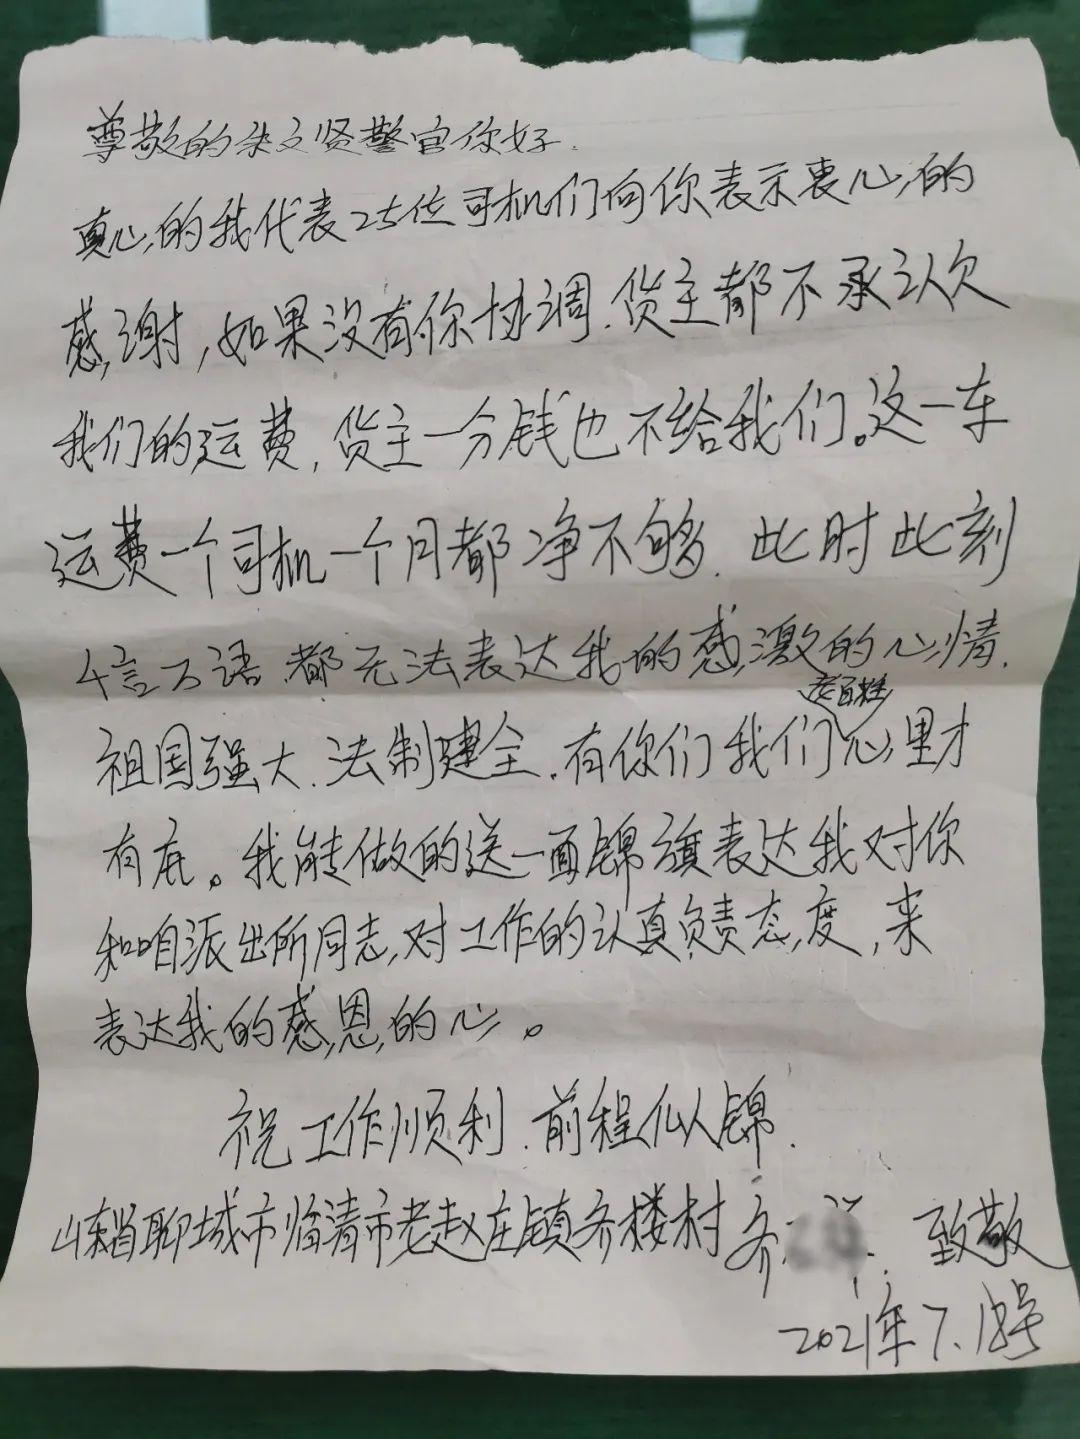 尊敬的朱文贤警官你好.
真心的我代表25位司机们向你表示衷心的
感谢,如果没有你协调.货主都不承认欠
我们的运费,货主一分钱也不给我们。这一车
运费一个司机一个月都净不够.此时此刻
千言万语.都无法表达我的感激的心情.
老百姓
祖国强大.法制建全.有你们我们心里才
有底。我能做的送一面锦旗表达我对你
和咱派出所同志,对工作的认真负责态度,来
表达我的感恩的心。
祝工作顺利.前程似锦.
山东省聊城市临清市老赵庄镇齐楼村齐 致敬
2021年7.18号